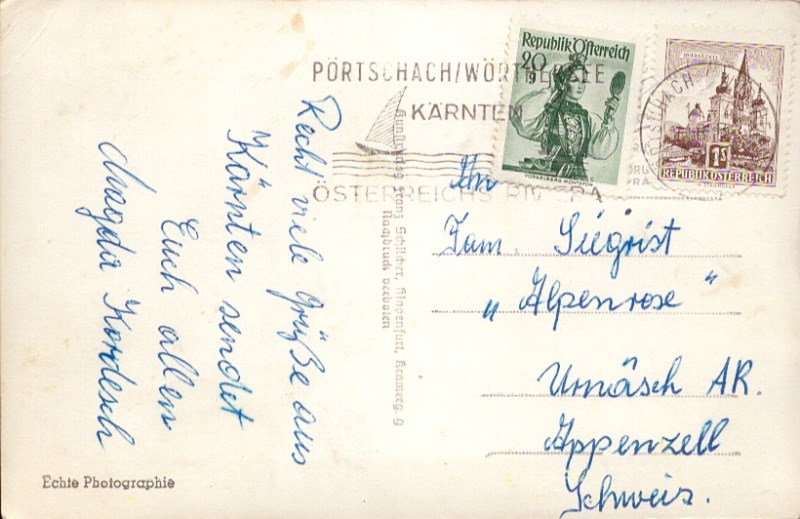 Recht viele Grüße aus
Kärnten sendet
Euch allen
Magda Kordesch
Echte Photographie
Kunstverlag Franz Schilcher, Klagenfurt, Kranzmg. 9
Nachdruck verboten
PÖRTSCHACH/WÖRTHERSEE
KÄRNTEN
ÖSTERREICHS RIVIERA
Republik Österreich
20
g
1S
REPUBLIK ÖSTERREICH
An
Fam. Siegrist
„Alpenrose"
Urnäsch AR.
Appenzell
Schweiz.